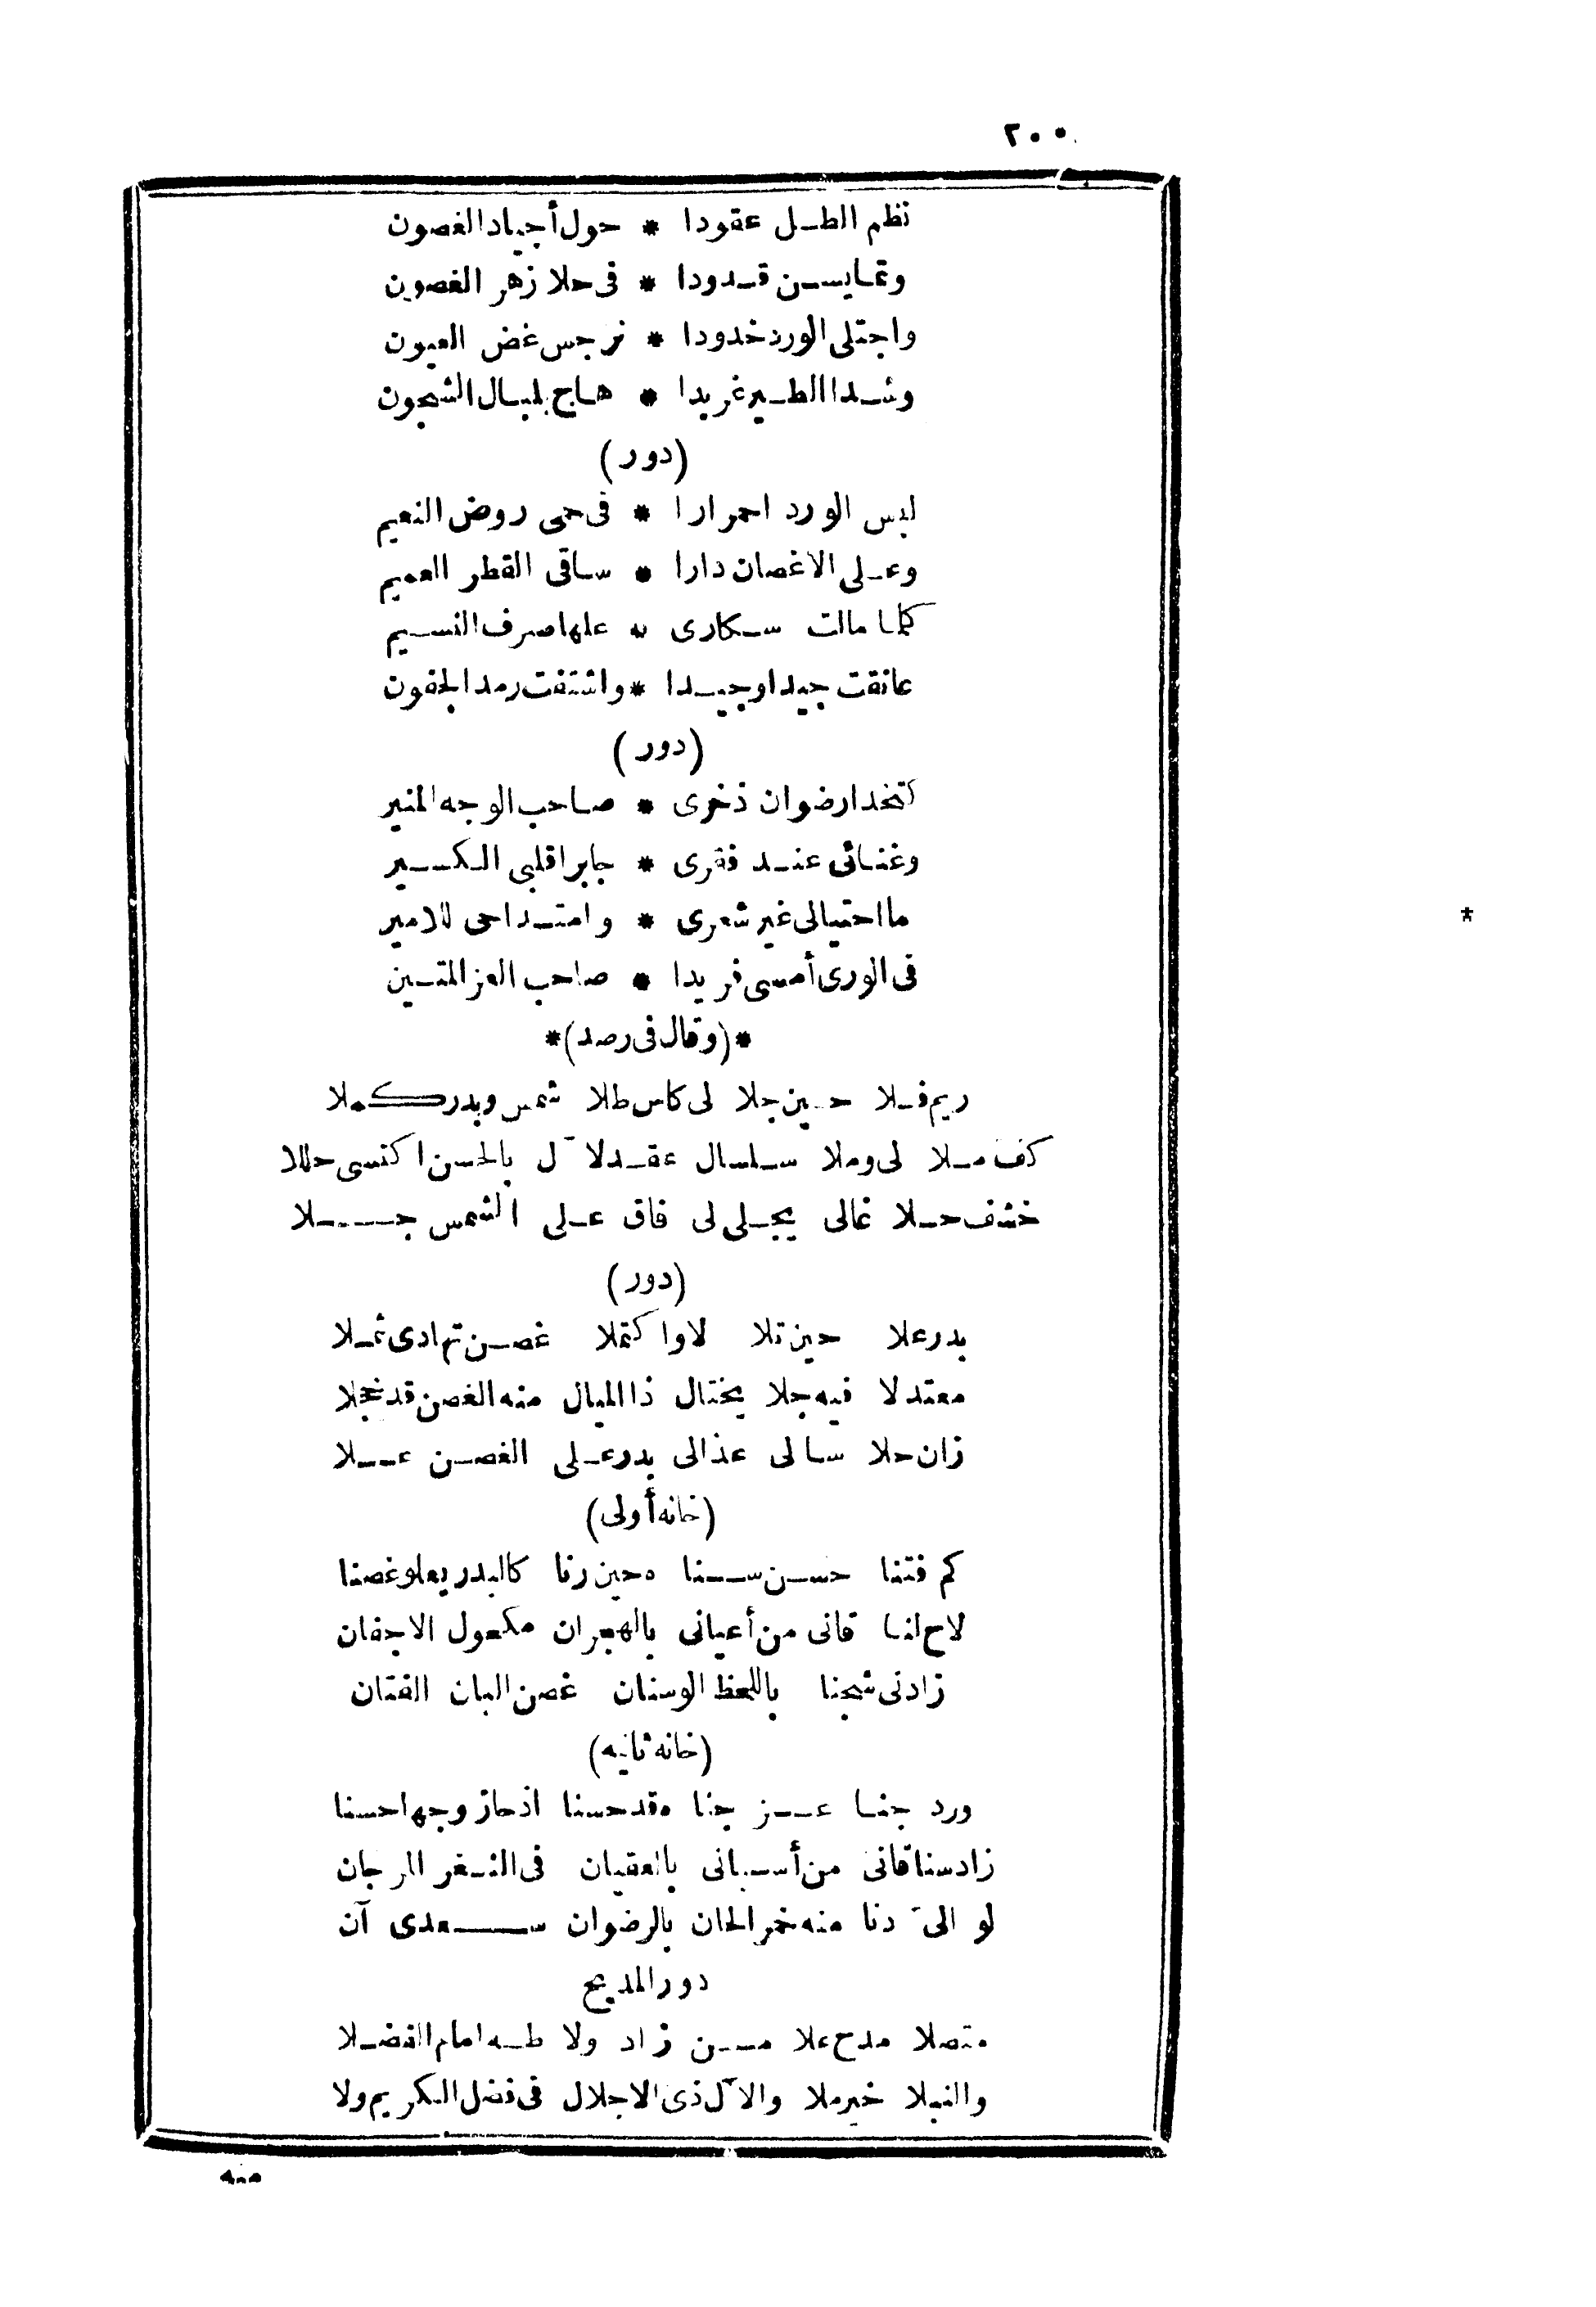 ٢٠٠
نظم الطل عقودا * حول أجياد الغصون
وتمايسن قدودا * فى حلا زهر الغصون
واجتلى الورد خدودا * نرجس غض العيون
وشدا الطير غريدا * هاج بلبال الشجون
(دور)
لبس الورد احمرارا * فى حمى روض النعيم
وعلى الاغصان دارا * ساقى القطر العميم
كلما مالت سكارى * علها صرف النسيم
عانقت جيدا وجيدا * واشتفت رمد الجفون
(دور)
كتخدا رضوان ذخرى * صاحب الوجه المنير
وغنائى عند فقرى * جابرا قلبى الكسير
ما احتيالى غير شعرى * وامتداحى للامير
فى الورى أمسى فريدا * صاحب العز المتين
*(وقال فى رصد)*
ريم فلا حين جلا لى كاس طلا شمس وبدر كملا
كف ملا لى وملا سلسال عقد لآل بالحسن اكتسى حللا
خشف حلا غالى يجلى لى فاق على الشمس جلا
(دور)
بدر علا حين تلا لاوا كتملا غصن تهادى ثملا
معتدلا فيه جلا يختال ذا الميال منه الغصن قد خجلا
زان حلا سالى عذالى بدر على الغصن علا
(خانه أولى)
كم فتنا حسن سنا ه حين رنا كالبدر يعلو غصنا
لاح لنا قانى من أعيانى بالهجران مكحول الاجفان
زادنى شجنا باللحظ الوسنان غصن البان الفتان
(خانه ثانيه)
ورد جنا عز جنا ه قد حسنا اذ حاز وجها حسنا
زاد سنا قانى من أسبانى بالعقيان فى الثغر المرجان
لو الىّ دنا منه خمر الحان بالرضوان سعدى آن
دور المديح
متصلا مدح علا من زاد ولا طه امام الفضلا
والنبلا خير ملا والآل ذى الاجلال فى فضل الكريم ولا
منه